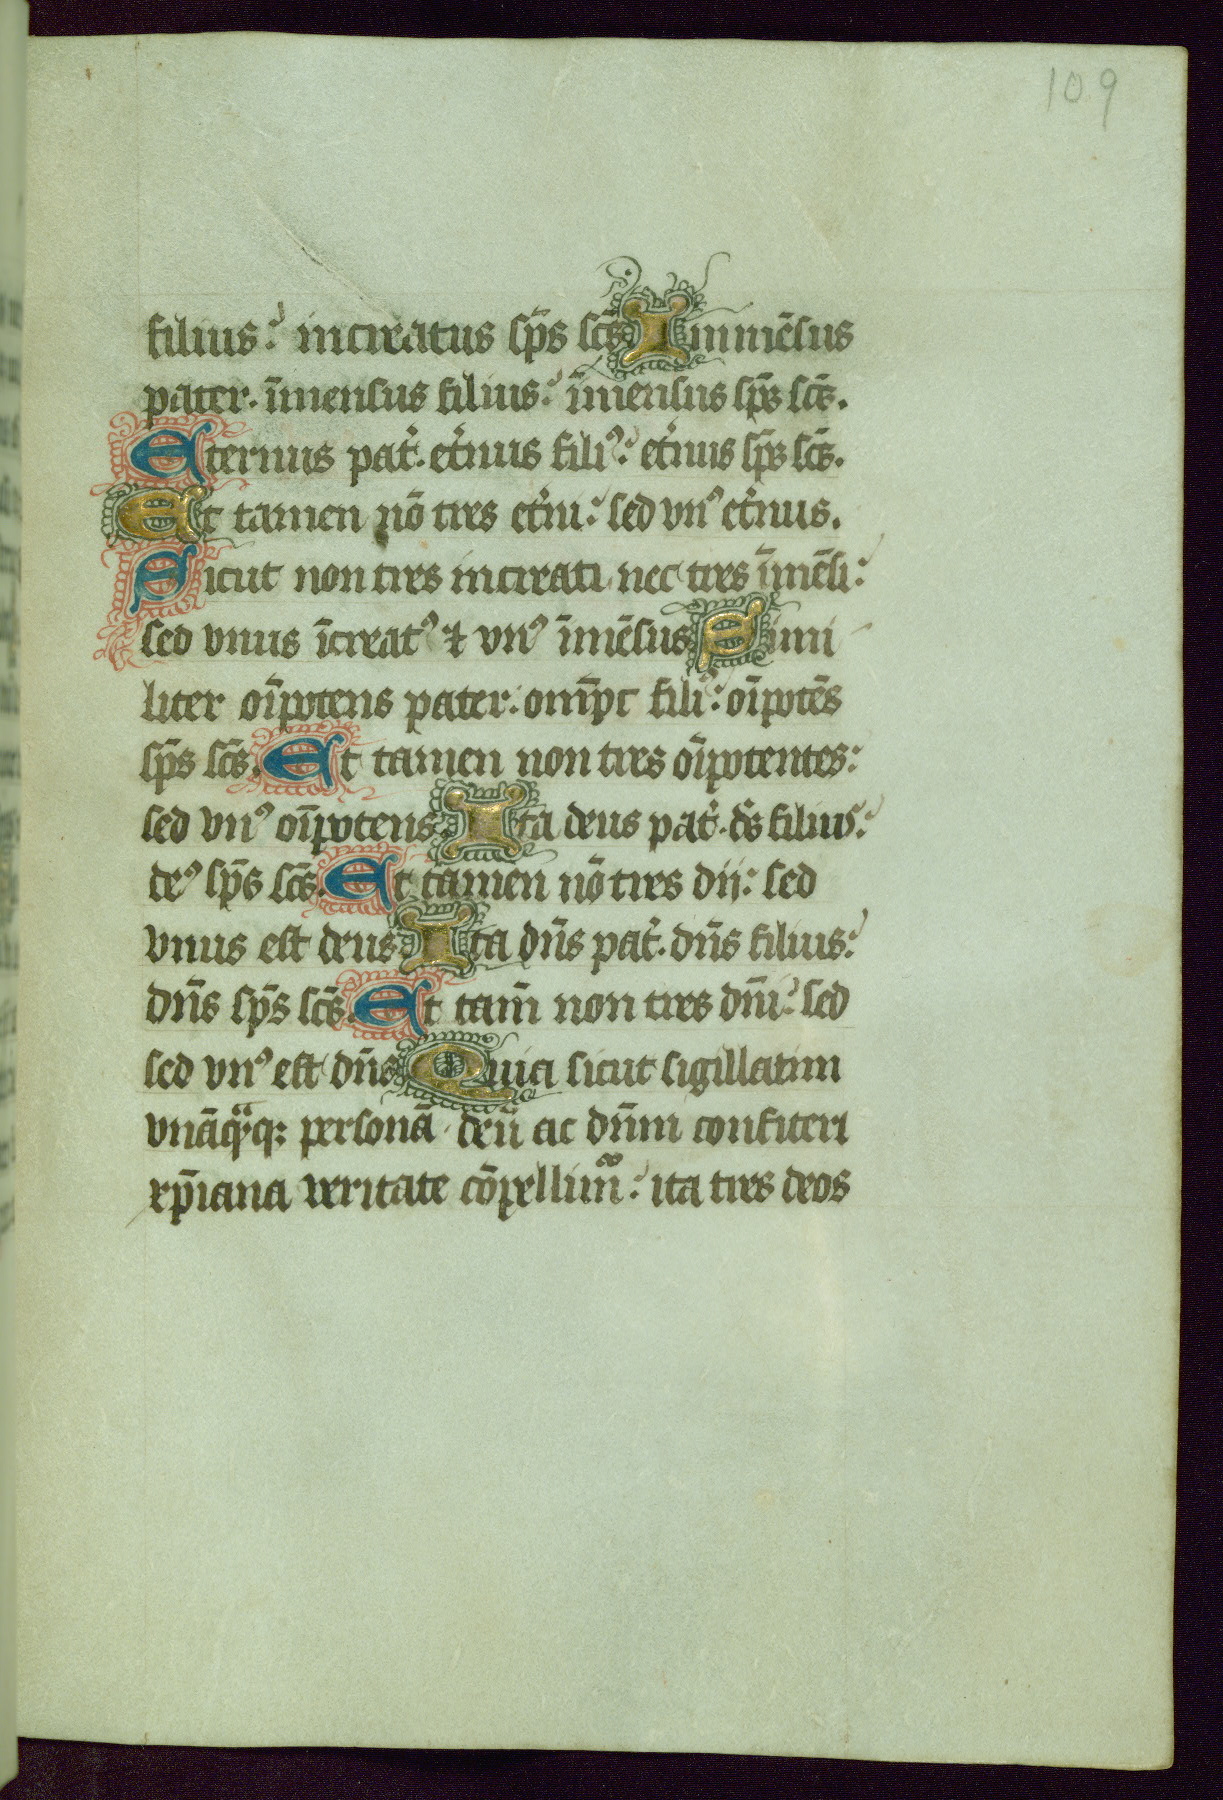 109
filius: increatus sp̄s sc̄s Inmēsus
pater. īmensus filius: īmensus sp̄s sc̄s.
Eternus pat̉. et̉nus filiꝰ: et̉nus sp̄s sc̄s.
Et tamen nō tres et̉ni: sed vnꝰ et̉nus.
Sicut non tres increati nec tres īmēsi:
sed vnus īcreatꝰ ⁊ vnꝰ īmēsus Simi
liter oīpotens pater: omīpt filiꝰ: oīpotēs
sp̄s sc̄s. Et tamen non tres oīpotentes:
sed vnꝰ oīpotens. Ita deus pat̉. ds̄ filius:
deꝰ sp̄s sc̄s. Et tamen nō tres dij: sed
vnus est deus. Ita dn̄s pat̉. dn̄s filius:
dn̄s sp̄s sc̄s. Et tam̄ non tres dn̄i: sed
sed vnꝰ est dn̄s Quia sicut sigillatim
vnāqͣqꝫ personā deū ac dn̄m confiteri
xp̄iana veritate cōpellimͬ: ita tres deos